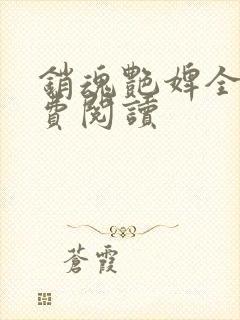 銷魂艷婢全
費閱讀
蒼霞